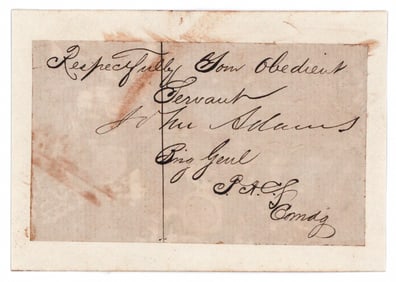 Respectfully Your Obedient
Servant
John Adams
Brig Genl
P.A.C.S
Comdg